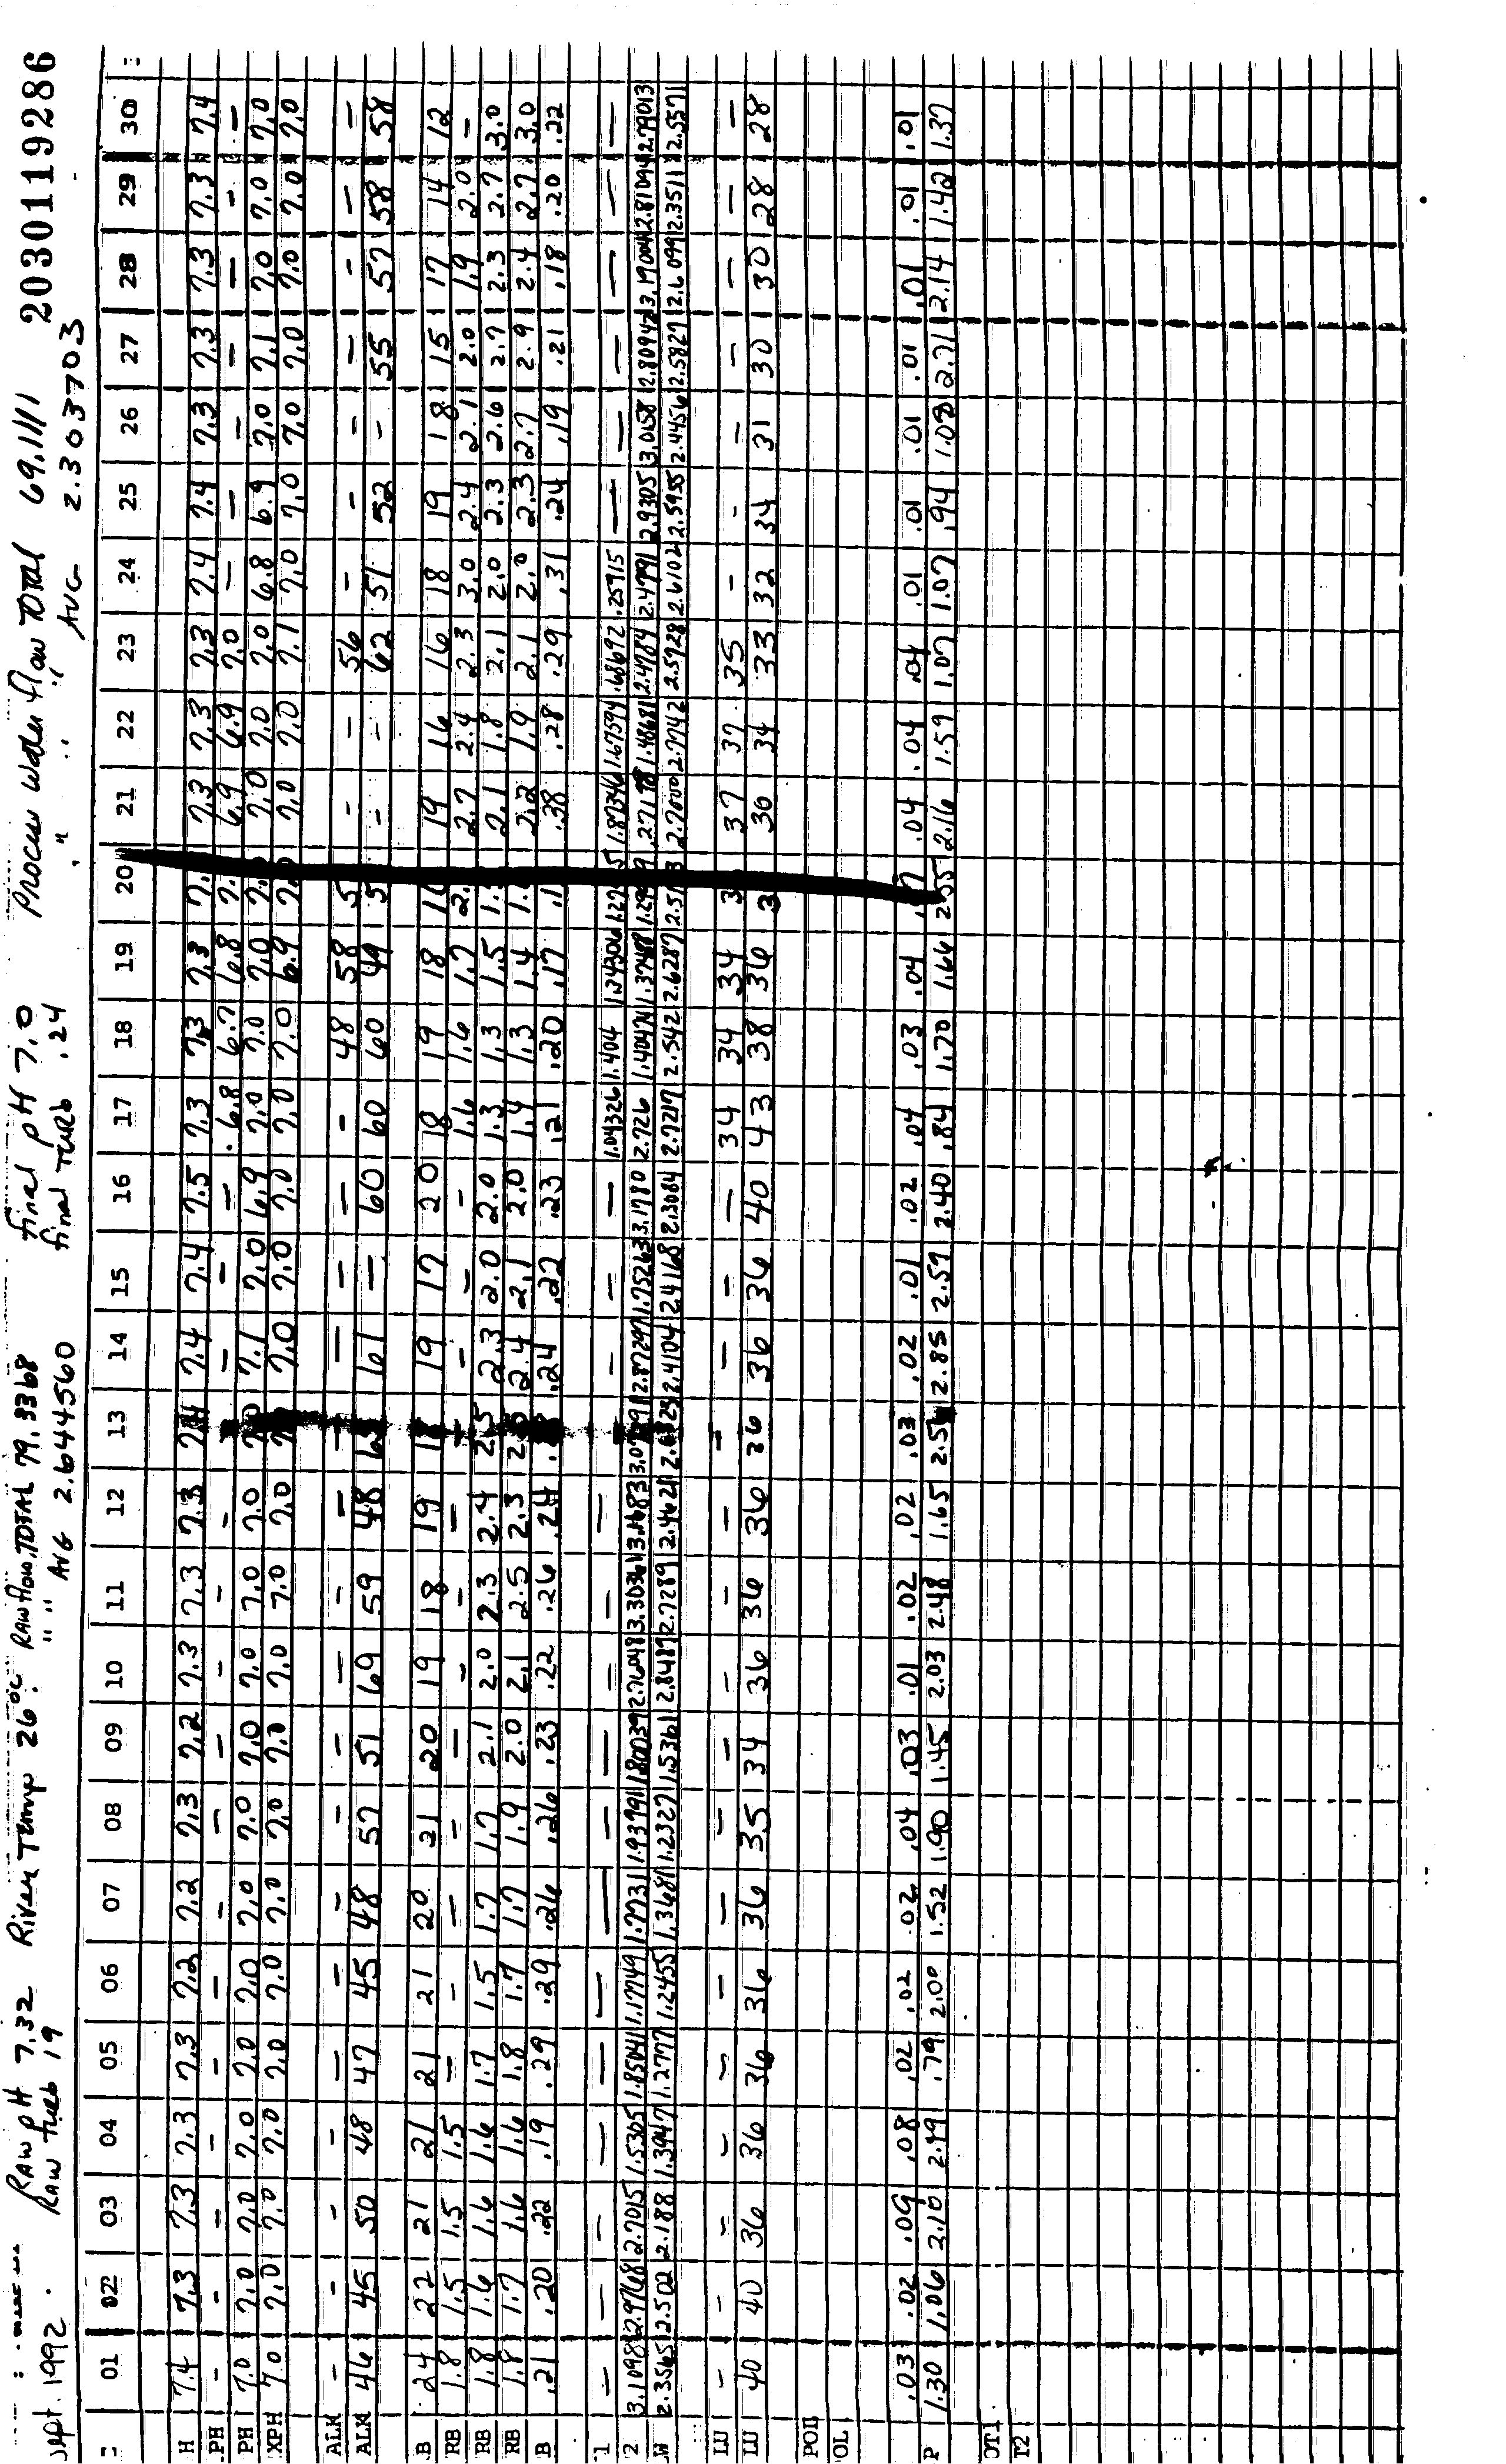 Sept. 1992 RAW pH 7.32 River Temp 26°C RAW flow. TOTAL 79.3368 final pH 7.0 Process Water flow Total 69.1111 2030119286
RAW Turb 19 " " AVG 2.644560 final Turb .24 " " " AVG 2.303703
01 02 03 04 05 06 07 08 09 10 11 12 13 14 15 16 17 18 19 20 21 22 23 24 25 26 27 28 29 30
H 7.4 7.3 7.3 7.3 7.3 7.2 7.2 7.3 7.2 7.3 7.3 7.3 7.4 7.4 7.4 7.5 7.3 7.3 7.3 7.3 7.3 7.3 7.4 7.4 7.3 7.3 7.3 7.3 7.4
PH - - - - - - - - - - - - - - - 6.8 6.7 6.8 6.9 6.9 7.0 - - - - - - -
PH 7.0 7.0 7.0 7.0 7.0 7.0 7.0 7.0 7.0 7.0 7.0 7.0 7.1 7.0 6.9 7.0 7.0 7.0 7.0 7.0 7.0 6.8 6.9 7.0 7.1 7.0 7.0 7.0
XPH 7.0 7.0 7.0 7.0 7.0 7.0 7.0 7.0 7.0 7.0 7.0 7.0 7.0 7.0 7.0 7.0 7.0 6.9 7.0 7.0 7.1 7.0 7.0 7.0 7.0 7.0 7.0 7.0
ALK - - - - - - - - - - - - - - - - - 48 58 - - 56 - - - - - - -
ALK 46 45 50 48 47 45 48 57 51 69 59 48 61 - 60 60 60 49 - - 62 51 52 - 55 57 58 58
B 24 22 21 21 21 21 20 21 20 19 18 19 19 17 20 18 19 18 19 16 16 18 19 18 15 17 14 12
RB 1.8 1.5 1.5 1.5 - - - - - - - - - - - - 1.6 1.6 1.7 2.7 2.4 2.3 3.0 2.4 2.1 2.0 1.9 2.0 -
RB 1.8 1.6 1.6 1.6 1.7 1.5 1.7 1.7 2.1 2.0 2.3 2.4 2.5 2.3 2.0 2.0 1.3 1.3 1.5 2.1 1.8 2.1 2.0 2.3 2.6 2.7 2.3 2.7 3.0
RB 1.8 1.7 1.6 1.6 1.8 1.7 1.7 1.9 2.0 2.1 2.5 2.3 2.4 2.1 2.0 1.4 1.3 1.4 2.2 1.9 2.1 2.0 2.3 2.7 2.9 2.4 2.7 3.0
B .21 .20 .22 .19 .29 .29 .26 .26 .23 .22 .26 .24 .24 .22 .23 .21 .20 .17 .38 .28 .29 .31 .24 .19 .21 .18 .20 .22
1 - - - - - - - - - - - - - - - 1.04326 1.404 1.34306 1.87346 1.67594 .68692 .25915 - - - - - -
2 3.1098 2.9768 2.7015 1.5305 1.85041 1.1749 1.7731 1.93991 1.80039 2.76048 3.30361 3.1683 2.87297 1.75263 3.1780 2.726 1.40474 1.37488 1.48681 2.4784 2.4791 2.9305 3.0158 2.80942 3.19004 2.81094 2.79013
W 2.3565 2.502 2.188 1.3947 1.2777 1.2455 1.3481 1.2327 1.5361 2.8489 2.7289 2.4621 2.4104 2.4168 2.3084 2.7217 2.542 2.6287 2.7000 2.7742 2.5928 2.6102 2.5955 2.4456 2.5827 2.6099 2.3511 2.5571
LU - - - - - - - - - - - - - - - - 34 34 34 37 37 35 - - - - - - -
LU 40 40 36 36 36 36 36 35 34 36 36 36 36 36 36 40 43 38 36 30 34 33 32 34 31 30 30 28 28
POL
OL
.03 .02 .09 .08 .02 .02 .02 .04 .03 .01 .02 .02 .03 .02 .01 .02 .04 .03 .04 .04 .04 .04 .01 .01 .01 .01 .01 .01 .01
P 1.30 1.06 2.10 2.99 .79 2.00 1.52 1.90 1.45 2.03 2.48 1.65 2.85 2.59 2.40 .84 1.70 1.66 2.55 2.16 1.59 1.07 1.07 .94 1.08 2.71 2.14 1.42 1.37
OT1
T2